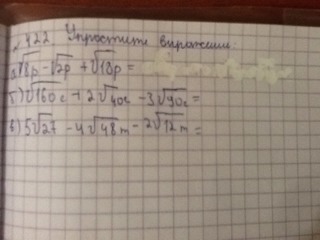 № 422 Упростите выражения:
а) √8p - √2p + √18p =
б) √160c + 2√40c - 3√90c =
в) 5√27 - 4√48m - 2√12m =